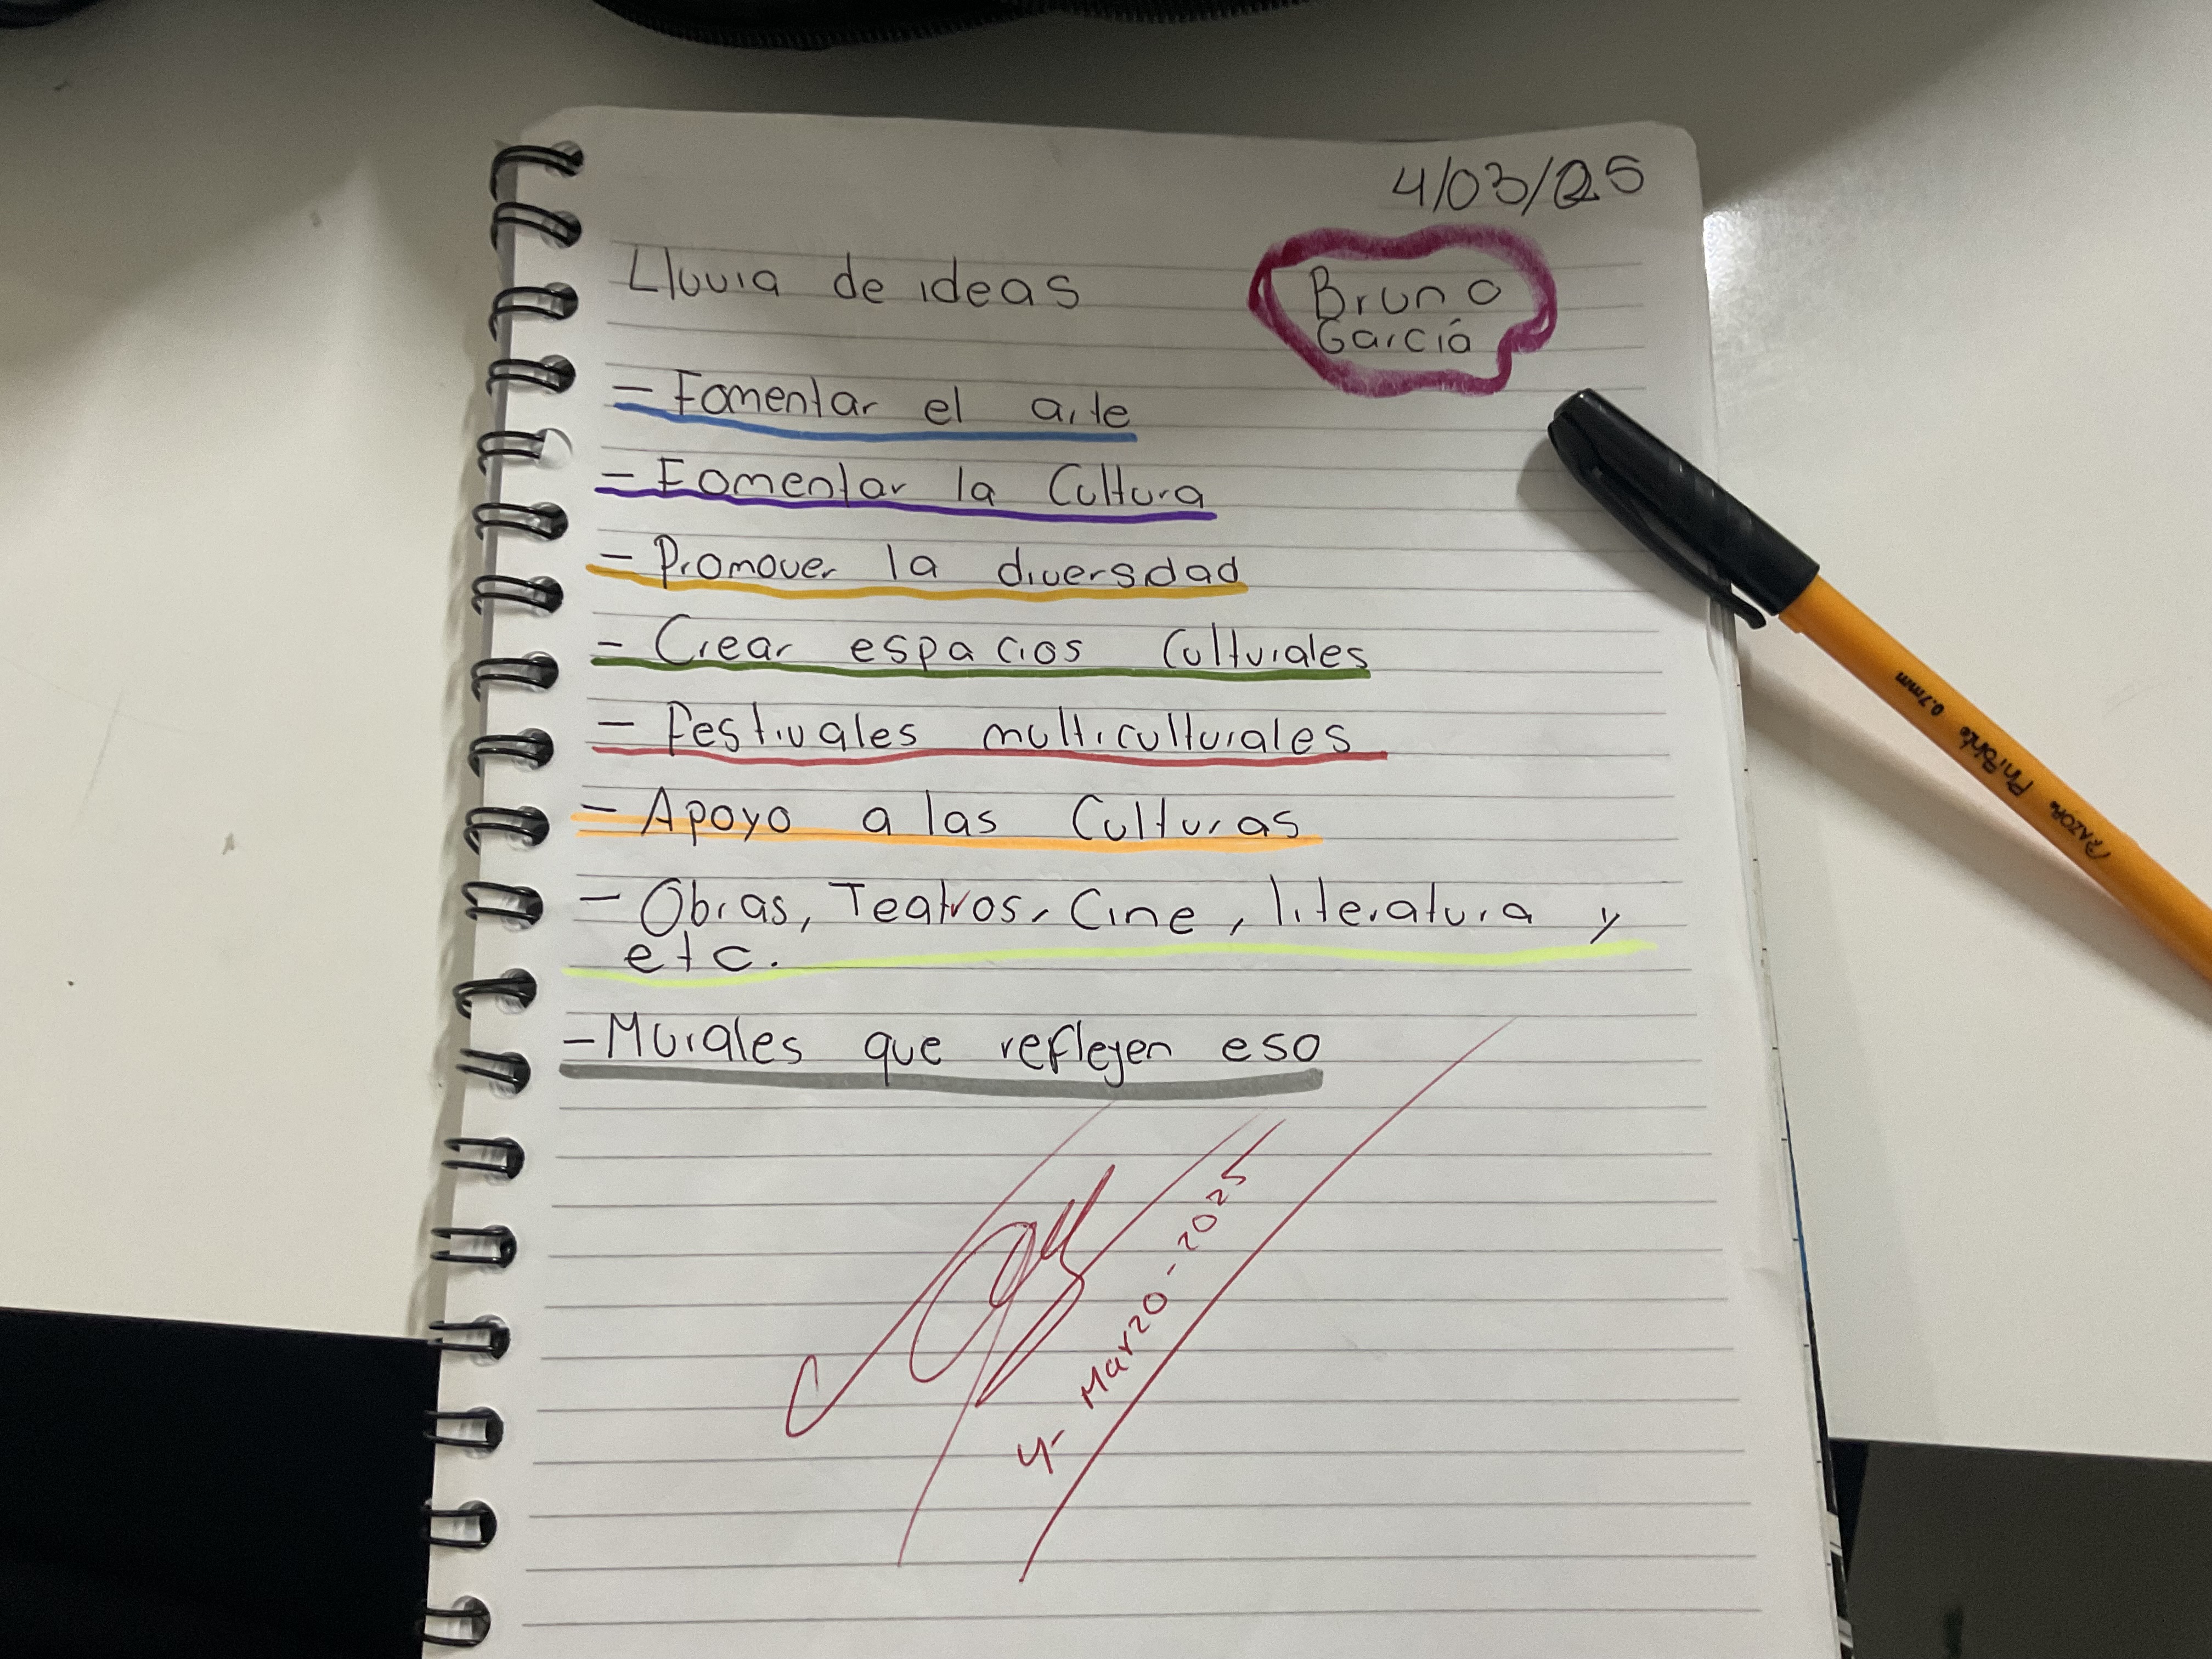 4/03/25
Lluvia de ideas
Bruno
García
- Fomentar el arte
- Fomentar la Cultura
- Promover la diversdad
- Crear espacios Culturales
- Festivales multiculturales
- Apoyo a las Culturas
- Obras, Teatros, Cine, literatura y
etc.
- Murales que reflejen eso
4- Marzo - 2025
RAZOR Pin Pointe 0.7mm